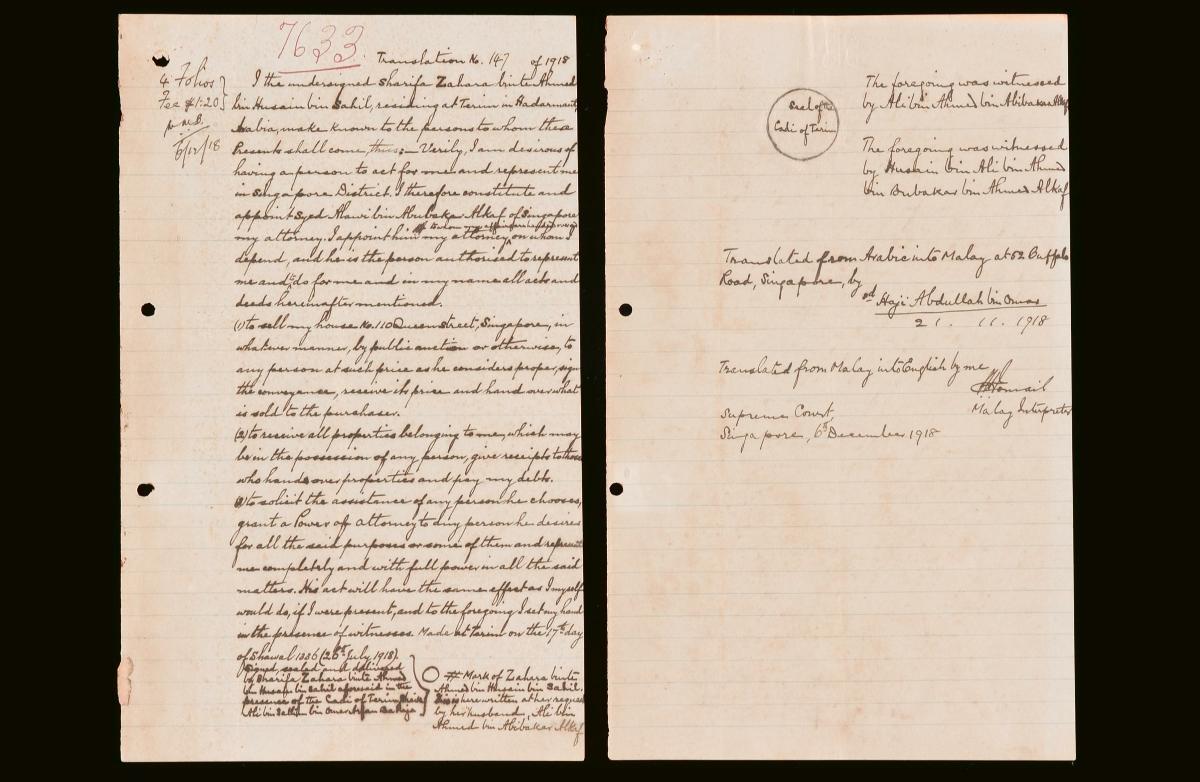 7633
Translation No. 147 of 1918
4 Folios
Fee $1.20
6/12/18
I the undersigned Sharifa Zahara binte Ahmed
bin Husain bin Sahil, residing at Terim in Hadarmaut
Arabia, make known to the persons to whom these
Presents shall come, thus:— Verily, I am desirous of
having a person to act for me and represent me
in Singapore District. I therefore constitute and
appoint Syed Alawi bin Abubakar Alkaf of Singapore
my attorney. I appoint him my attorney, on whom I
depend, and he is the person authorised to represent
me and to do for me and in my name all acts and
deeds hereinafter mentioned.
(1) to sell my house No. 110 Queen street, Singapore, in
whatever manner, by public auction or otherwise, to
any person at such price as he considers proper, sign
the conveyance, receive its price and hand over what
is sold to the purchaser.
(2) to receive all properties belonging to me, which may
be in the possession of any person, give receipts to those
who hand over properties and pay my debts.
(3) to solicit the assistance of any person he chooses,
grant a Power of Attorney to any person he desires
for all the said purposes or some of them and represent
me completely and with full power in all the said
matters. His act will have the same effect as I myself
would do, if I were present, and to the foregoing I set my hand
in the presence of witnesses. Made at Terim on the 17th day
of Shawal 1336 (26th July, 1918).
Signed, sealed and delivered
by Sharifa Zahara binte Ahmed
bin Husain bin Sahil aforesaid in the
presence of the Cadi of Terim, Shaik
Ali bin Salim bin Omar
# Mark of Zahara binte
Ahmed bin Husain bin Sahil.
here written at her request
by her husband, Ali bin
Ahmed bin Abibakar Alkaf
Seal of the
Cadi of Terim
The foregoing was witnessed
by Ali bin Ahmed bin Abibakar Alkaf
The foregoing was witnessed
by Husain bin Ali bin Ahmed
bin Bubakar bin Ahmed Alkaf
Translated from Arabic into Malay at 52 Buffalo
Road, Singapore, by
sd Haji Abdullah bin Omar
21. 11. 1918
Translated from Malay into English by me
Malay Interpreter
Supreme Court,
Singapore, 6th December 1918